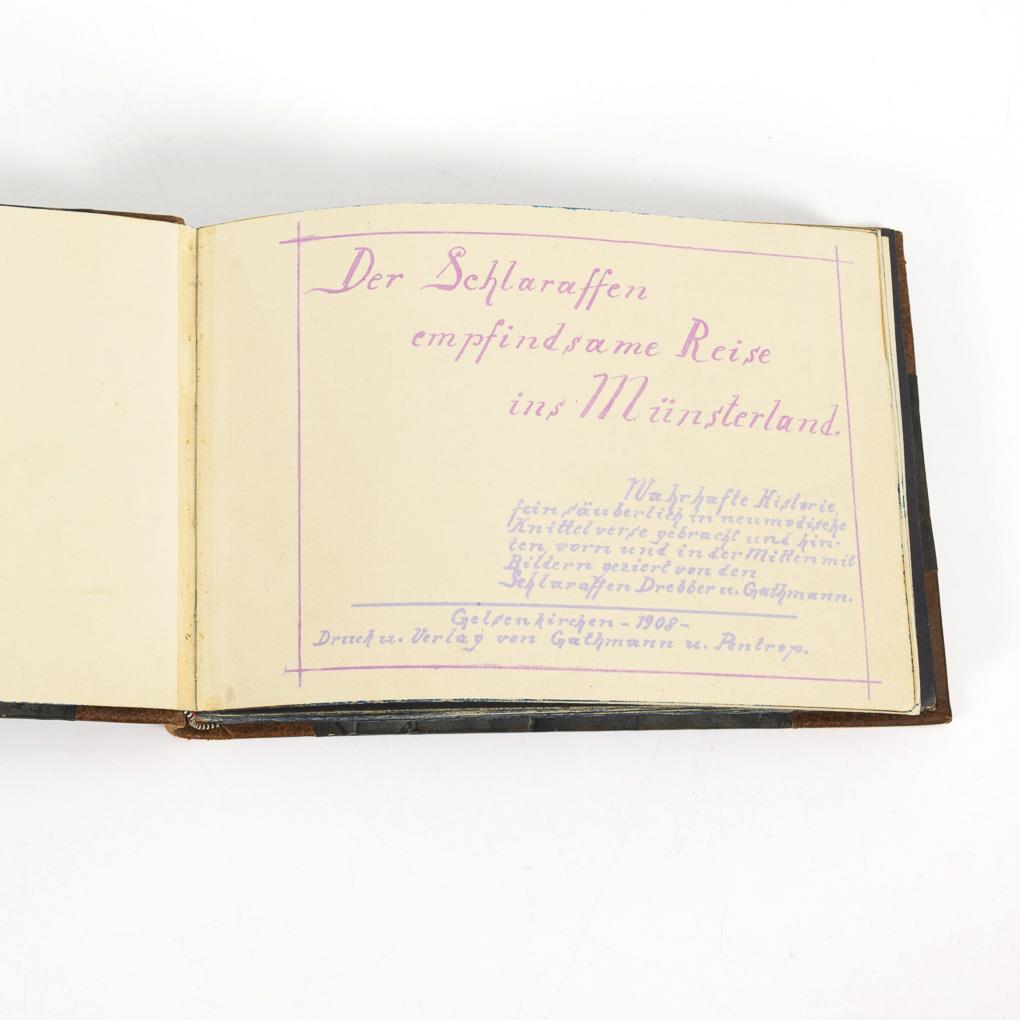 Der Schlaraffen
empfindsame Reise
ins Münsterland.
Wahrhafte Historie,
fein säuberlich in neumodische
Knittelverse gebracht und hin-
ten, vorn und in der Mitten mit
Bildern geziert von den
Schlaraffen Drebber u. Gathmann.
Gelsenkirchen - 1908 -
Druck u. Verlag von Gathmann u. Pentrop.